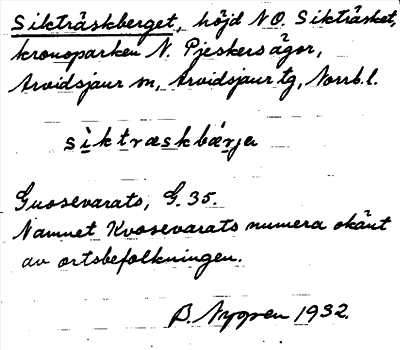 Sikträskberget, höjd N.O. Sikträsket,
kronoparken N. Pjeskersägor,
Arvidsjaur sn, Arvidsjaur tg, Norrb.l.
sìktræskbæ̀rje
Guosevarats, G.35.
Namnet Kvosevarats numera okänt
av ortsbefolkningen.
B. Nygren 1932.